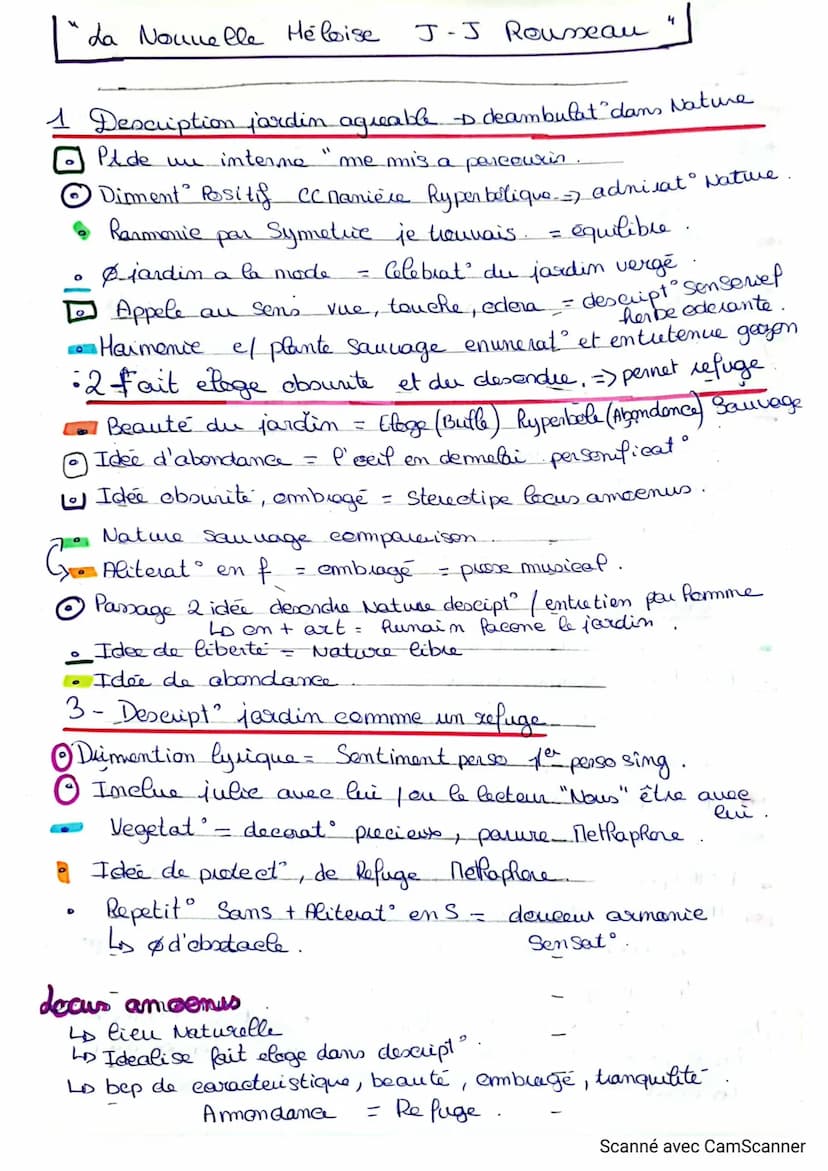 "La Nouvelle Héloise J-J Rousseau"
1 Description jardin agréable → deambulat° dans Nature
Pt de vu interne "me mis a parcourir.
Diment° Positif CC manière Hyperbolique => admirat° Nature.
Harmonie par Symetrie je trouvais. = équilibre.
Ø jardin a la mode = Celebrat° du jardin vergé.
Appele au sens vue, touche, odora = descript° sensoriel
herbe odorante.
Harmonie e/ plante sauvage enumerat° et entretenue gazon
2 fait eloge obsurite et du desordre, => permet refuge
Beauté du jardin = Eloge (Bulle) Hyperbole (Abondance) Sauvage
Idée d'abondance = l'oeil en demelai personificat°
Idée obsurité, ombragé = Stereotipe locus amoenus.
Nature sauvage comparaison.
Aliterat° en f = ombragé = prose musical.
Passage 2 idée desordre Nature descipt° / entretien par homme
↳ on + art = Humain facone le jardin.
Idee de liberté = Nature libre
Idée de abondance.
3 - Descript° jardin comme un refuge
Dimention lyrique = Sentiment perso 1er perso sing.
Inclue julie avec lui / ou le lecteur "Nous" être avec
lui.
Vegetat° = decorat° precieuse, parure Metaphore.
Idée de protect°, de Refuge Metaphore.
Repetit° Sans + Aliterat° en S = douceur armonie
↳ Ø d'obstacle. Sensat°.
locus amoenus
↳ lieu Naturelle
↳ Idealise fait eloge dans descript°.
↳ bcp de caracteristique, beauté, ombragé, tranquilité
Amondance = Refuge.
Scanné avec CamScanner